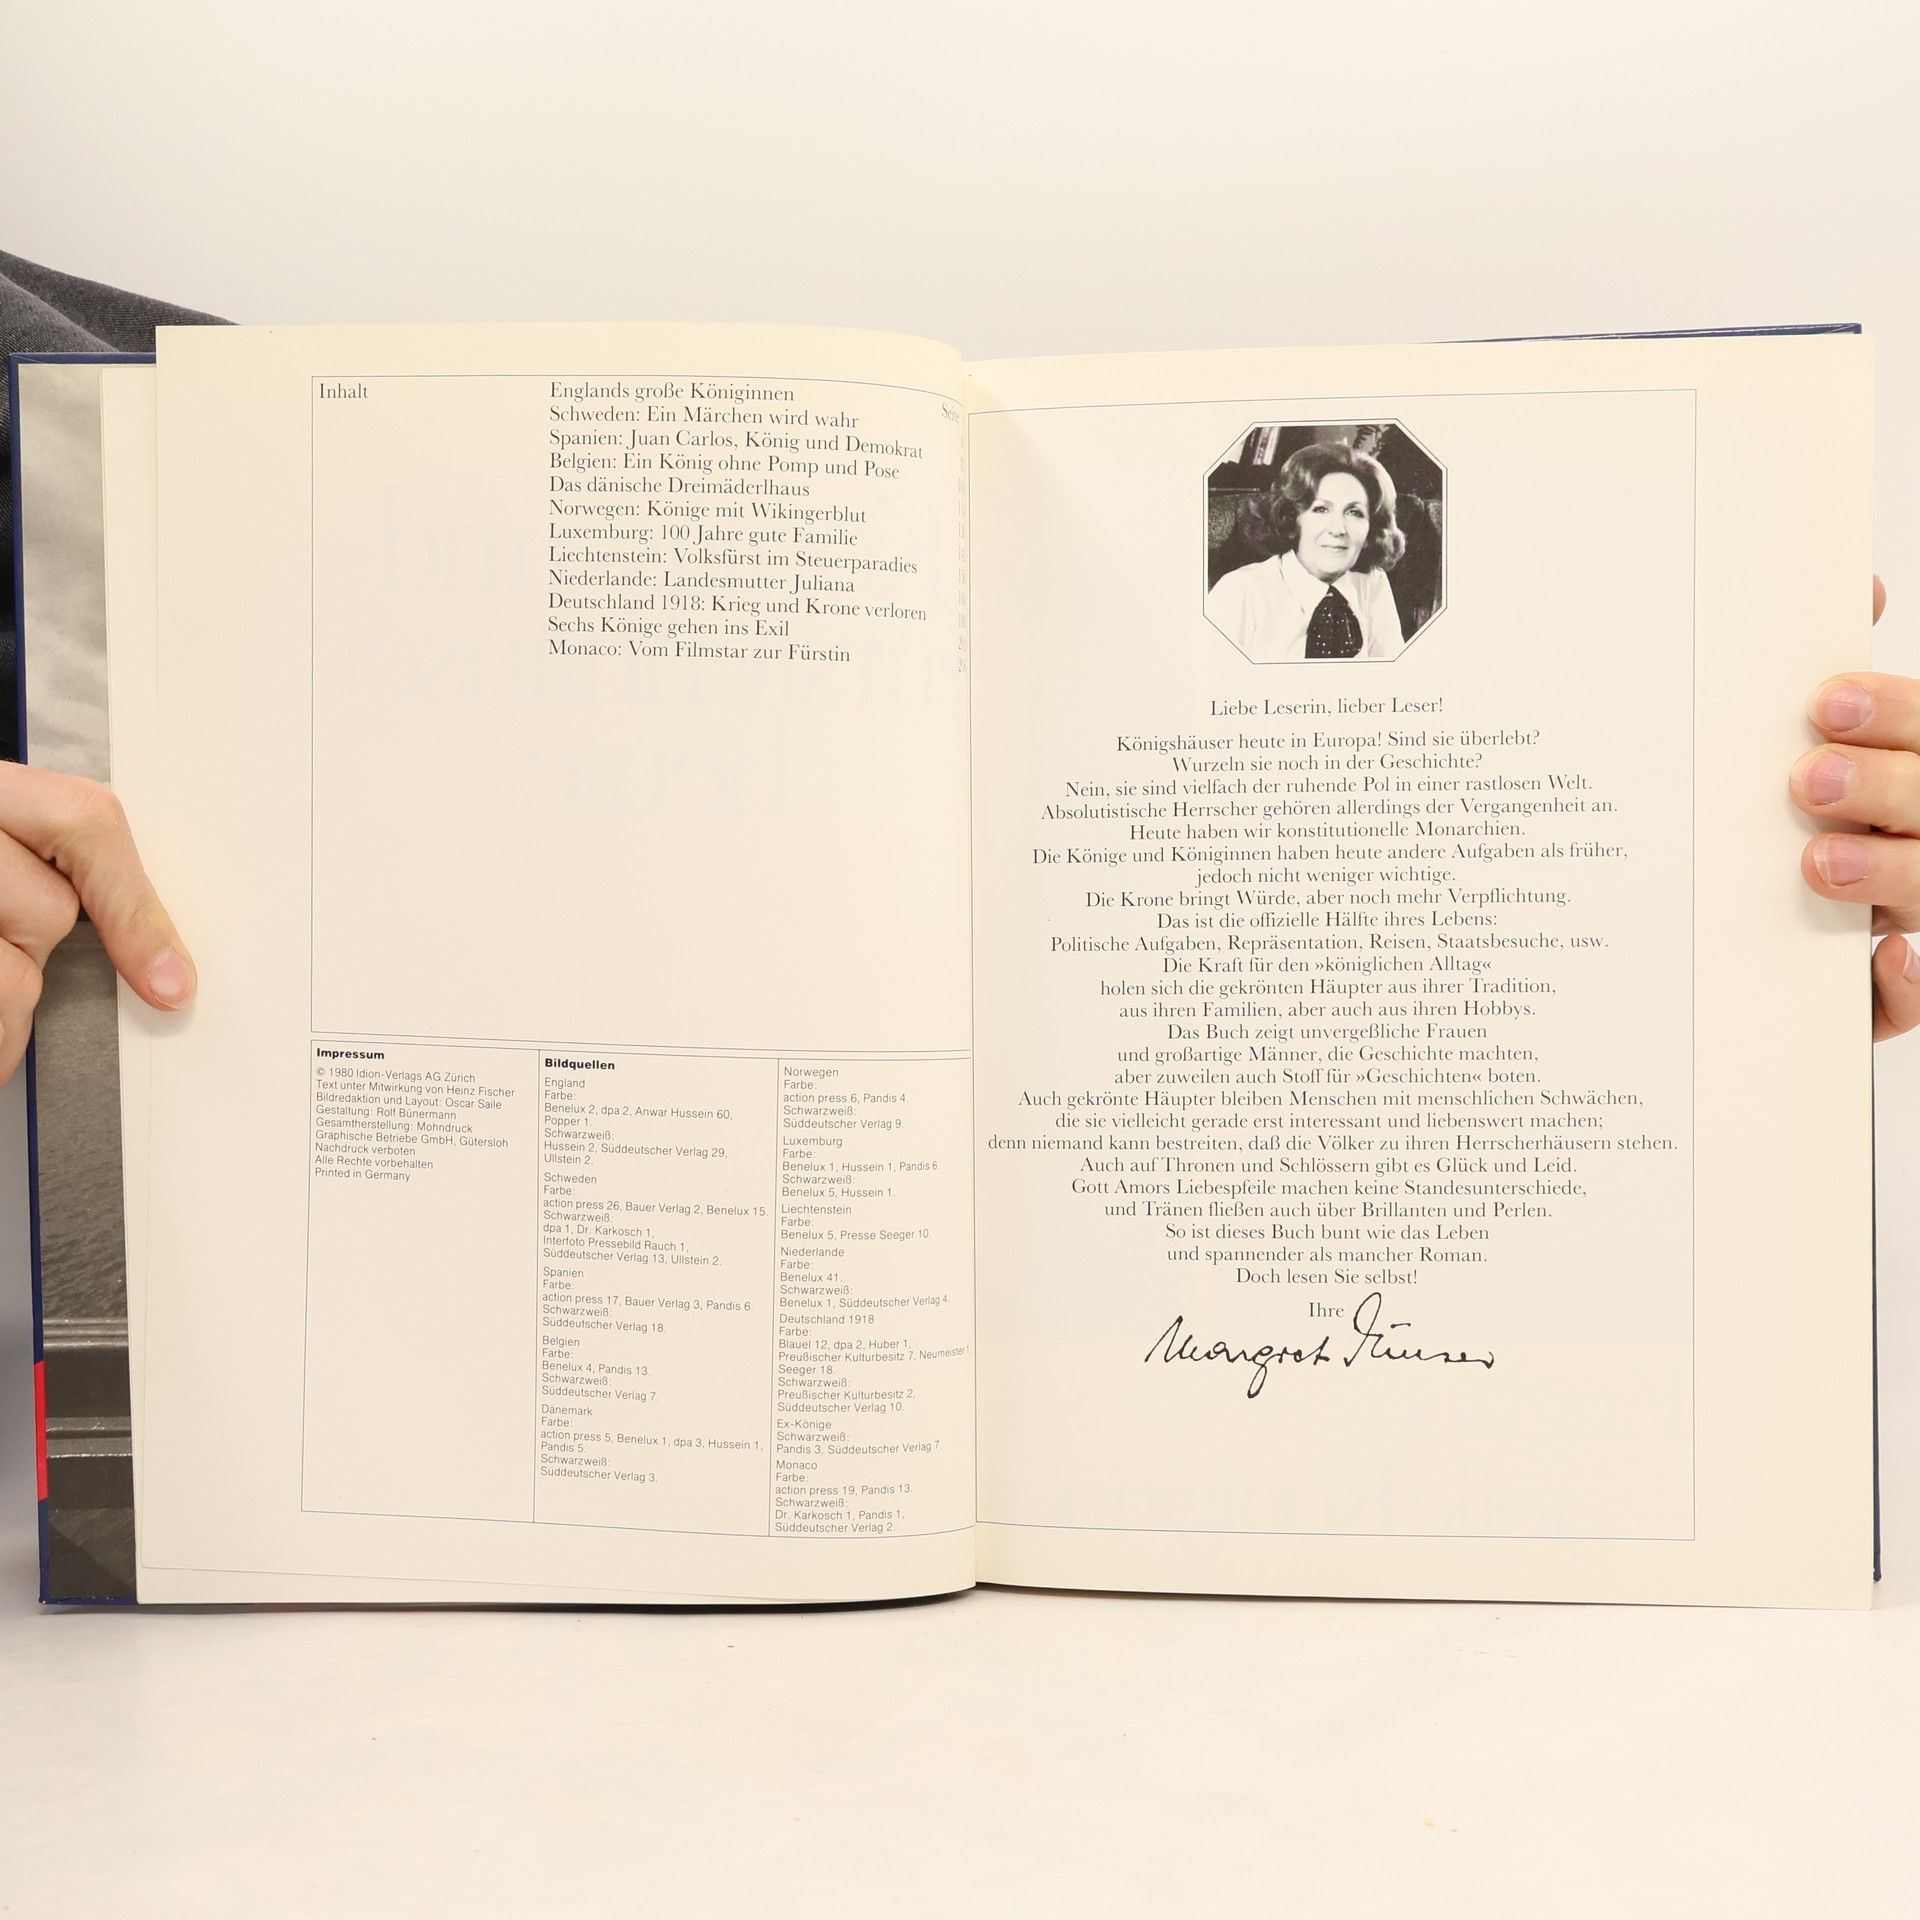 Inhalt
Seite
Englands große Königinnen
Schweden: Ein Märchen wird wahr
Spanien: Juan Carlos, König und Demokrat
Belgien: Ein König ohne Pomp und Pose
Das dänische Dreimäderlhaus
Norwegen: Könige mit Wikingerblut
Luxemburg: 100 Jahre gute Familie
Liechtenstein: Volksfürst im Steuerparadies
Niederlande: Landesmutter Juliana
Deutschland 1918: Krieg und Krone verloren
Sechs Könige gehen ins Exil
Monaco: Vom Filmstar zur Fürstin
Impressum
© 1980 Idion-Verlags AG Zürich
Text unter Mitwirkung von Heinz Fischer
Bildredaktion und Layout: Oscar Saile
Gestaltung: Rolf Bünermann
Gesamtherstellung: Mohndruck
Graphische Betriebe GmbH, Gütersloh
Nachdruck verboten
Alle Rechte vorbehalten
Printed in Germany
Bildquellen
England
Farbe:
Benelux 2, dpa 2, Anwar Hussein 60,
Popper 1.
Schwarzweiß:
Hussein 2, Süddeutscher Verlag 29,
Ullstein 2.
Schweden
Farbe:
action press 26, Bauer Verlag 2, Benelux 15.
Schwarzweiß:
dpa 1, Dr. Karkosch 1,
Interfoto Pressebild Rauch 1,
Süddeutscher Verlag 13, Ullstein 2.
Spanien
Farbe:
action press 17, Bauer Verlag 3, Pandis 6.
Schwarzweiß:
Süddeutscher Verlag 18.
Belgien
Farbe:
Benelux 4, Pandis 13.
Schwarzweiß:
Süddeutscher Verlag 7.
Dänemark
Farbe:
action press 5, Benelux 1, dpa 3, Hussein 1,
Pandis 5.
Schwarzweiß:
Süddeutscher Verlag 3.
Norwegen
Farbe:
action press 6, Pandis 4.
Schwarzweiß:
Süddeutscher Verlag 9.
Luxemburg
Farbe:
Benelux 1, Hussein 1, Pandis 6.
Schwarzweiß:
Benelux 5, Hussein 1.
Liechtenstein
Farbe:
Benelux 5, Presse Seeger 10.
Niederlande
Farbe:
Benelux 41.
Schwarzweiß:
Benelux 1, Süddeutscher Verlag 4.
Deutschland 1918
Farbe:
Blauel 12, dpa 2, Huber 1,
Preußischer Kulturbesitz 7, Neumeister 1,
Seeger 18.
Schwarzweiß:
Preußischer Kulturbesitz 2,
Süddeutscher Verlag 10.
Ex-Könige
Schwarzweiß:
Pandis 3, Süddeutscher Verlag 7.
Monaco
Farbe:
action press 19, Pandis 13.
Schwarzweiß:
Dr. Karkosch 1, Pandis 1,
Süddeutscher Verlag 2.
Liebe Leserin, lieber Leser!
Königshäuser heute in Europa! Sind sie überlebt?
Wurzeln sie noch in der Geschichte?
Nein, sie sind vielfach der ruhende Pol in einer rastlosen Welt.
Absolutistische Herrscher gehören allerdings der Vergangenheit an.
Heute haben wir konstitutionelle Monarchien.
Die Könige und Königinnen haben heute andere Aufgaben als früher,
jedoch nicht weniger wichtige.
Die Krone bringt Würde, aber noch mehr Verpflichtung.
Das ist die offizielle Hälfte ihres Lebens:
Politische Aufgaben, Repräsentation, Reisen, Staatsbesuche, usw.
Die Kraft für den »königlichen Alltag«
holen sich die gekrönten Häupter aus ihrer Tradition,
aus ihren Familien, aber auch aus ihren Hobbys.
Das Buch zeigt unvergeßliche Frauen
und großartige Männer, die Geschichte machten,
aber zuweilen auch Stoff für »Geschichten« boten.
Auch gekrönte Häupter bleiben Menschen mit menschlichen Schwächen,
die sie vielleicht gerade erst interessant und liebenswert machen;
denn niemand kann bestreiten, daß die Völker zu ihren Herrscherhäusern stehen.
Auch auf Thronen und Schlössern gibt es Glück und Leid.
Gott Amors Liebespfeile machen keine Standesunterschiede,
und Tränen fließen auch über Brillanten und Perlen.
So ist dieses Buch bunt wie das Leben
und spannender als mancher Roman.
Doch lesen Sie selbst!
Ihre
Margret